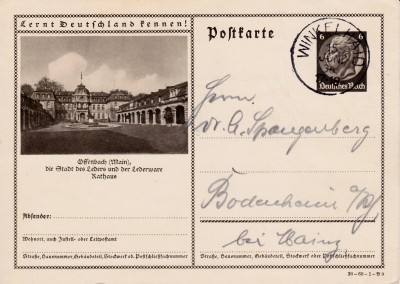 Lernt Deutschland kennen!
Offenbach (Main),
die Stadt des Leders und der Lederware
Rathaus
Absender:
Wohnort, auch Zustell- oder Leitpostamt
Straße, Hausnummer, Gebäudeteil, Stockwerk od. Postschließfachnummer
Postkarte
6 6
Deutsches Reich
WINKEL
Herrn
Dr. A. Spangenberg
Bodenheim a/Rh
bei Mainz
Straße, Hausnummer, Gebäudeteil, Stockwerk oder Postschließfachnummer